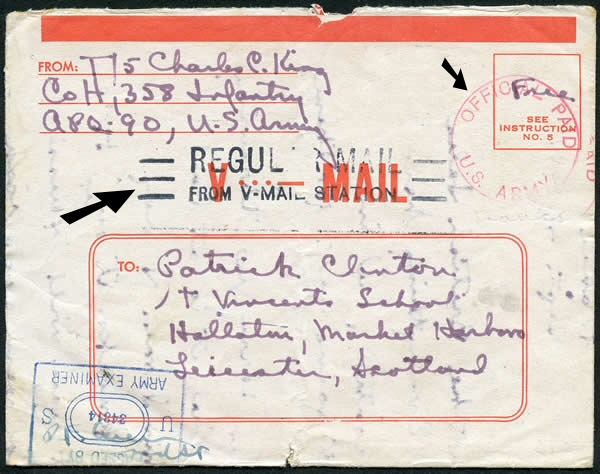 FROM: T/5 Charles C. King
Co H, 358 Infantry
APO-90, U.S. Army
Free
SEE
INSTRUCTION
NO. 5
OFFICIAL PAID
U.S. ARMY
PAID
REGUL R MAIL
V...— MAIL
FROM V-MAIL STATION
TO: Patrick Clinton
St Vincents School
Hallaton, Market Harboro
Leicester, Scotland
PASSED BY
U 34314 S
ARMY EXAMINER